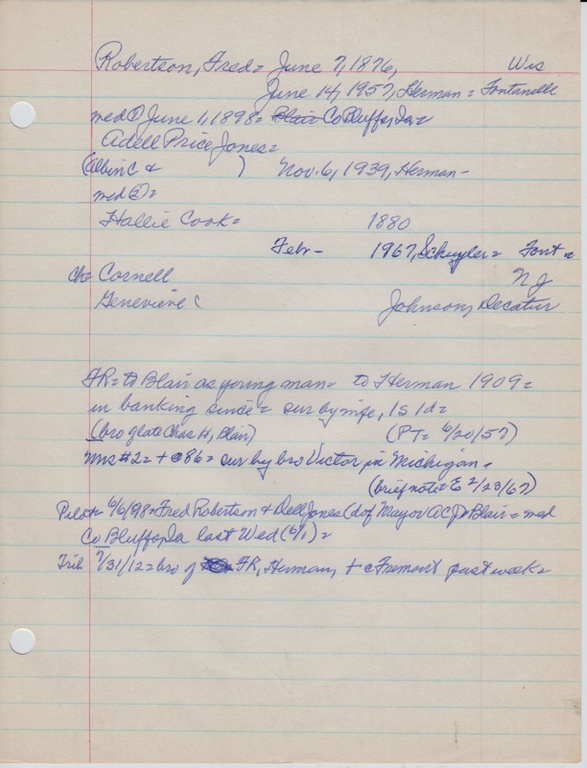 Robertson, Fred = June 7, 1876, Wis
June 14, 1957, Herman = Fontanelle
med ① June 1, 1898 = Blair Co Bluffs, Ia =
Adell Price Jones =
(Albin C & ) Nov. 6, 1939, Herman -
med ② =
Hallie Cook = 1880
Febr - 1967, Schuyler = Font =
ch = Cornell N J
Genevieve : Johnson, Decatur
FR = to Blair as young man = to Herman 1909 =
in banking since = sur by wife, 1s 1d =
(bro of late Chas H, Blair) (PT = 6/20/57)
Mrs #2 = + @86 = sur by bro Victor in Michigan =
(brief note = E 2/23/67)
Pilot = 6/6/98 = Fred Robertson & Dell Jones (d of Mayor AC J) Blair = med
Co Bluffs, Ia last Wed (6/1) =
Trib 7/31/12 = bro of FR, Herman, + @ Fremont past week =